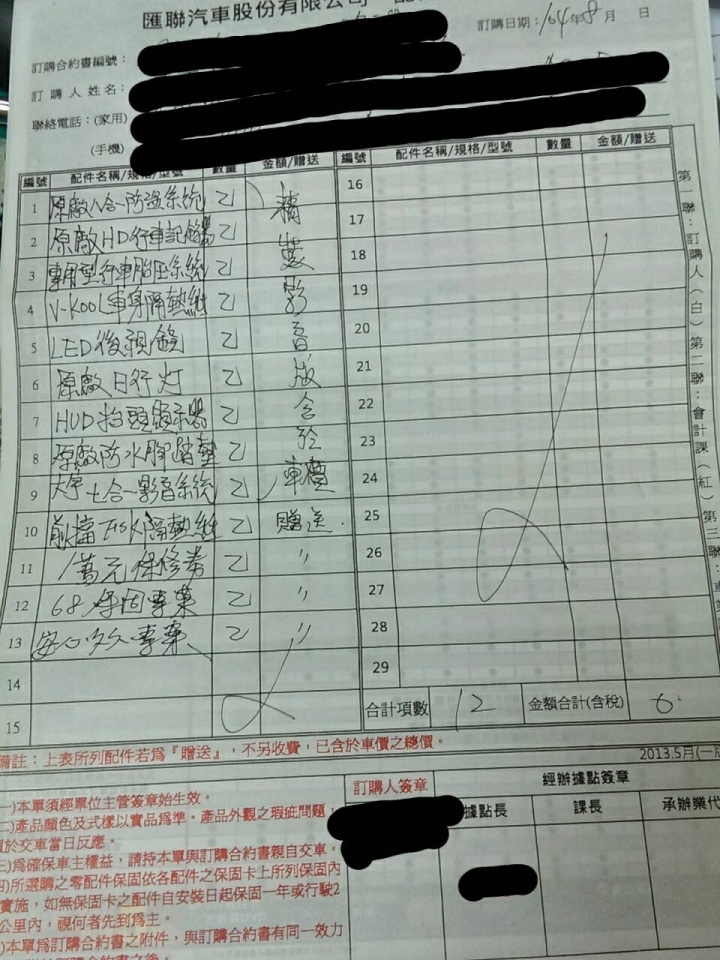 匯聯汽車股份有限公司
訂購日期：104年8月 日
訂購合約書編號：
訂購人姓名：
聯絡電話：(家用)
(手機)
編號 配件名稱/規格/型號 數量 金額/贈送
1 原廠八合一防盜系統 乙 精
2 原廠HD行車記錄器 乙 裝
3 專用型行車胎壓系統 乙 影
4 V-KOOL車身隔熱紙 乙 音
5 LED後視鏡 乙 版
6 原廠日行灯 乙 含
7 HUD抬頭顯示器 乙 於
8 原廠防水腳踏墊 乙 車價
9 七合一影音系統 乙
10 前擋 隔熱紙 乙 贈送.
11 1萬元保修券 乙 〃
12 68保固專案 乙 〃
13 安心 專案 乙 〃
14
15
編號 配件名稱/規格/型號 數量 金額/贈送
16
17
18
19
20
21
22
23
24
25
26
27
28
29
合計項數 12 金額合計(含稅) 0
第一聯：訂購人(白) 第二聯：會計課(紅) 第三聯：
備註：上表所列配件若為『贈送』，不另收費，已含於車價之總價。
2013.5月(一版
一)本單須經單位主管簽章始生效。
二)產品顏色及式樣以實品為準。產品外觀之瑕疵問題，
於交車當日反應。
三)為確保車主權益，請持本單與訂購合約書親自交車。
四)所選購之零配件保固依各配件之保固卡上所列保固內
實施，如無保固卡之配件自安裝日起保固一年或行駛2
公里內，視何者先到為主。
)本單為訂購合約書之附件，與訂購合約書有同一效力
訂購人簽章
經辦據點簽章
據點長 課長 承辦業代